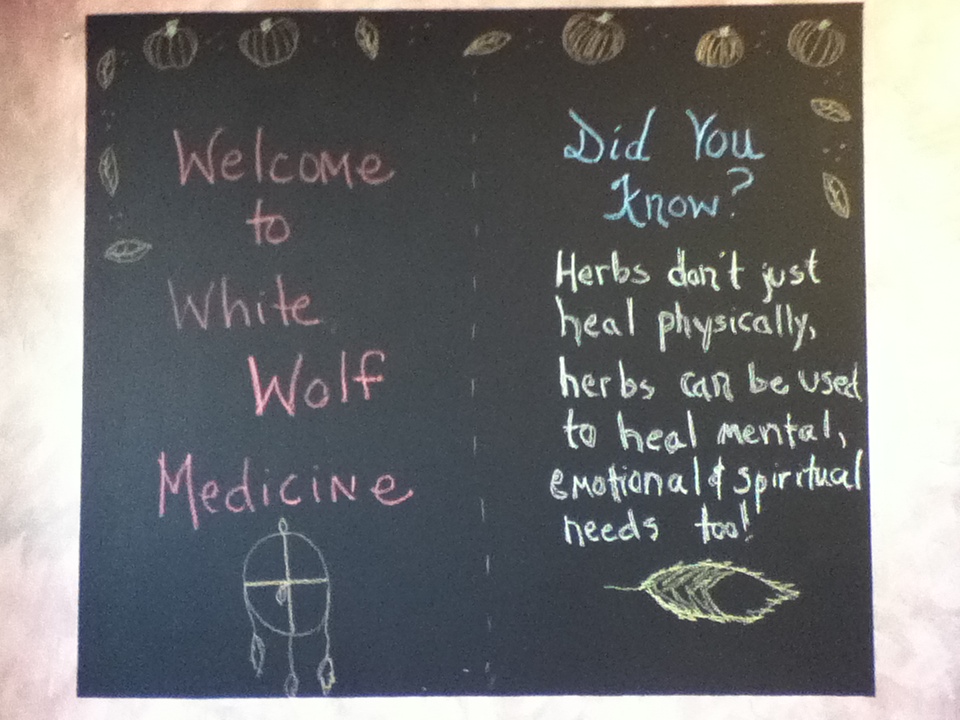 Welcome
to
White
Wolf
Medicine
Did You
Know?
Herbs don't just
heal physically,
herbs can be used
to heal mental,
emotional & spiritual
needs too!